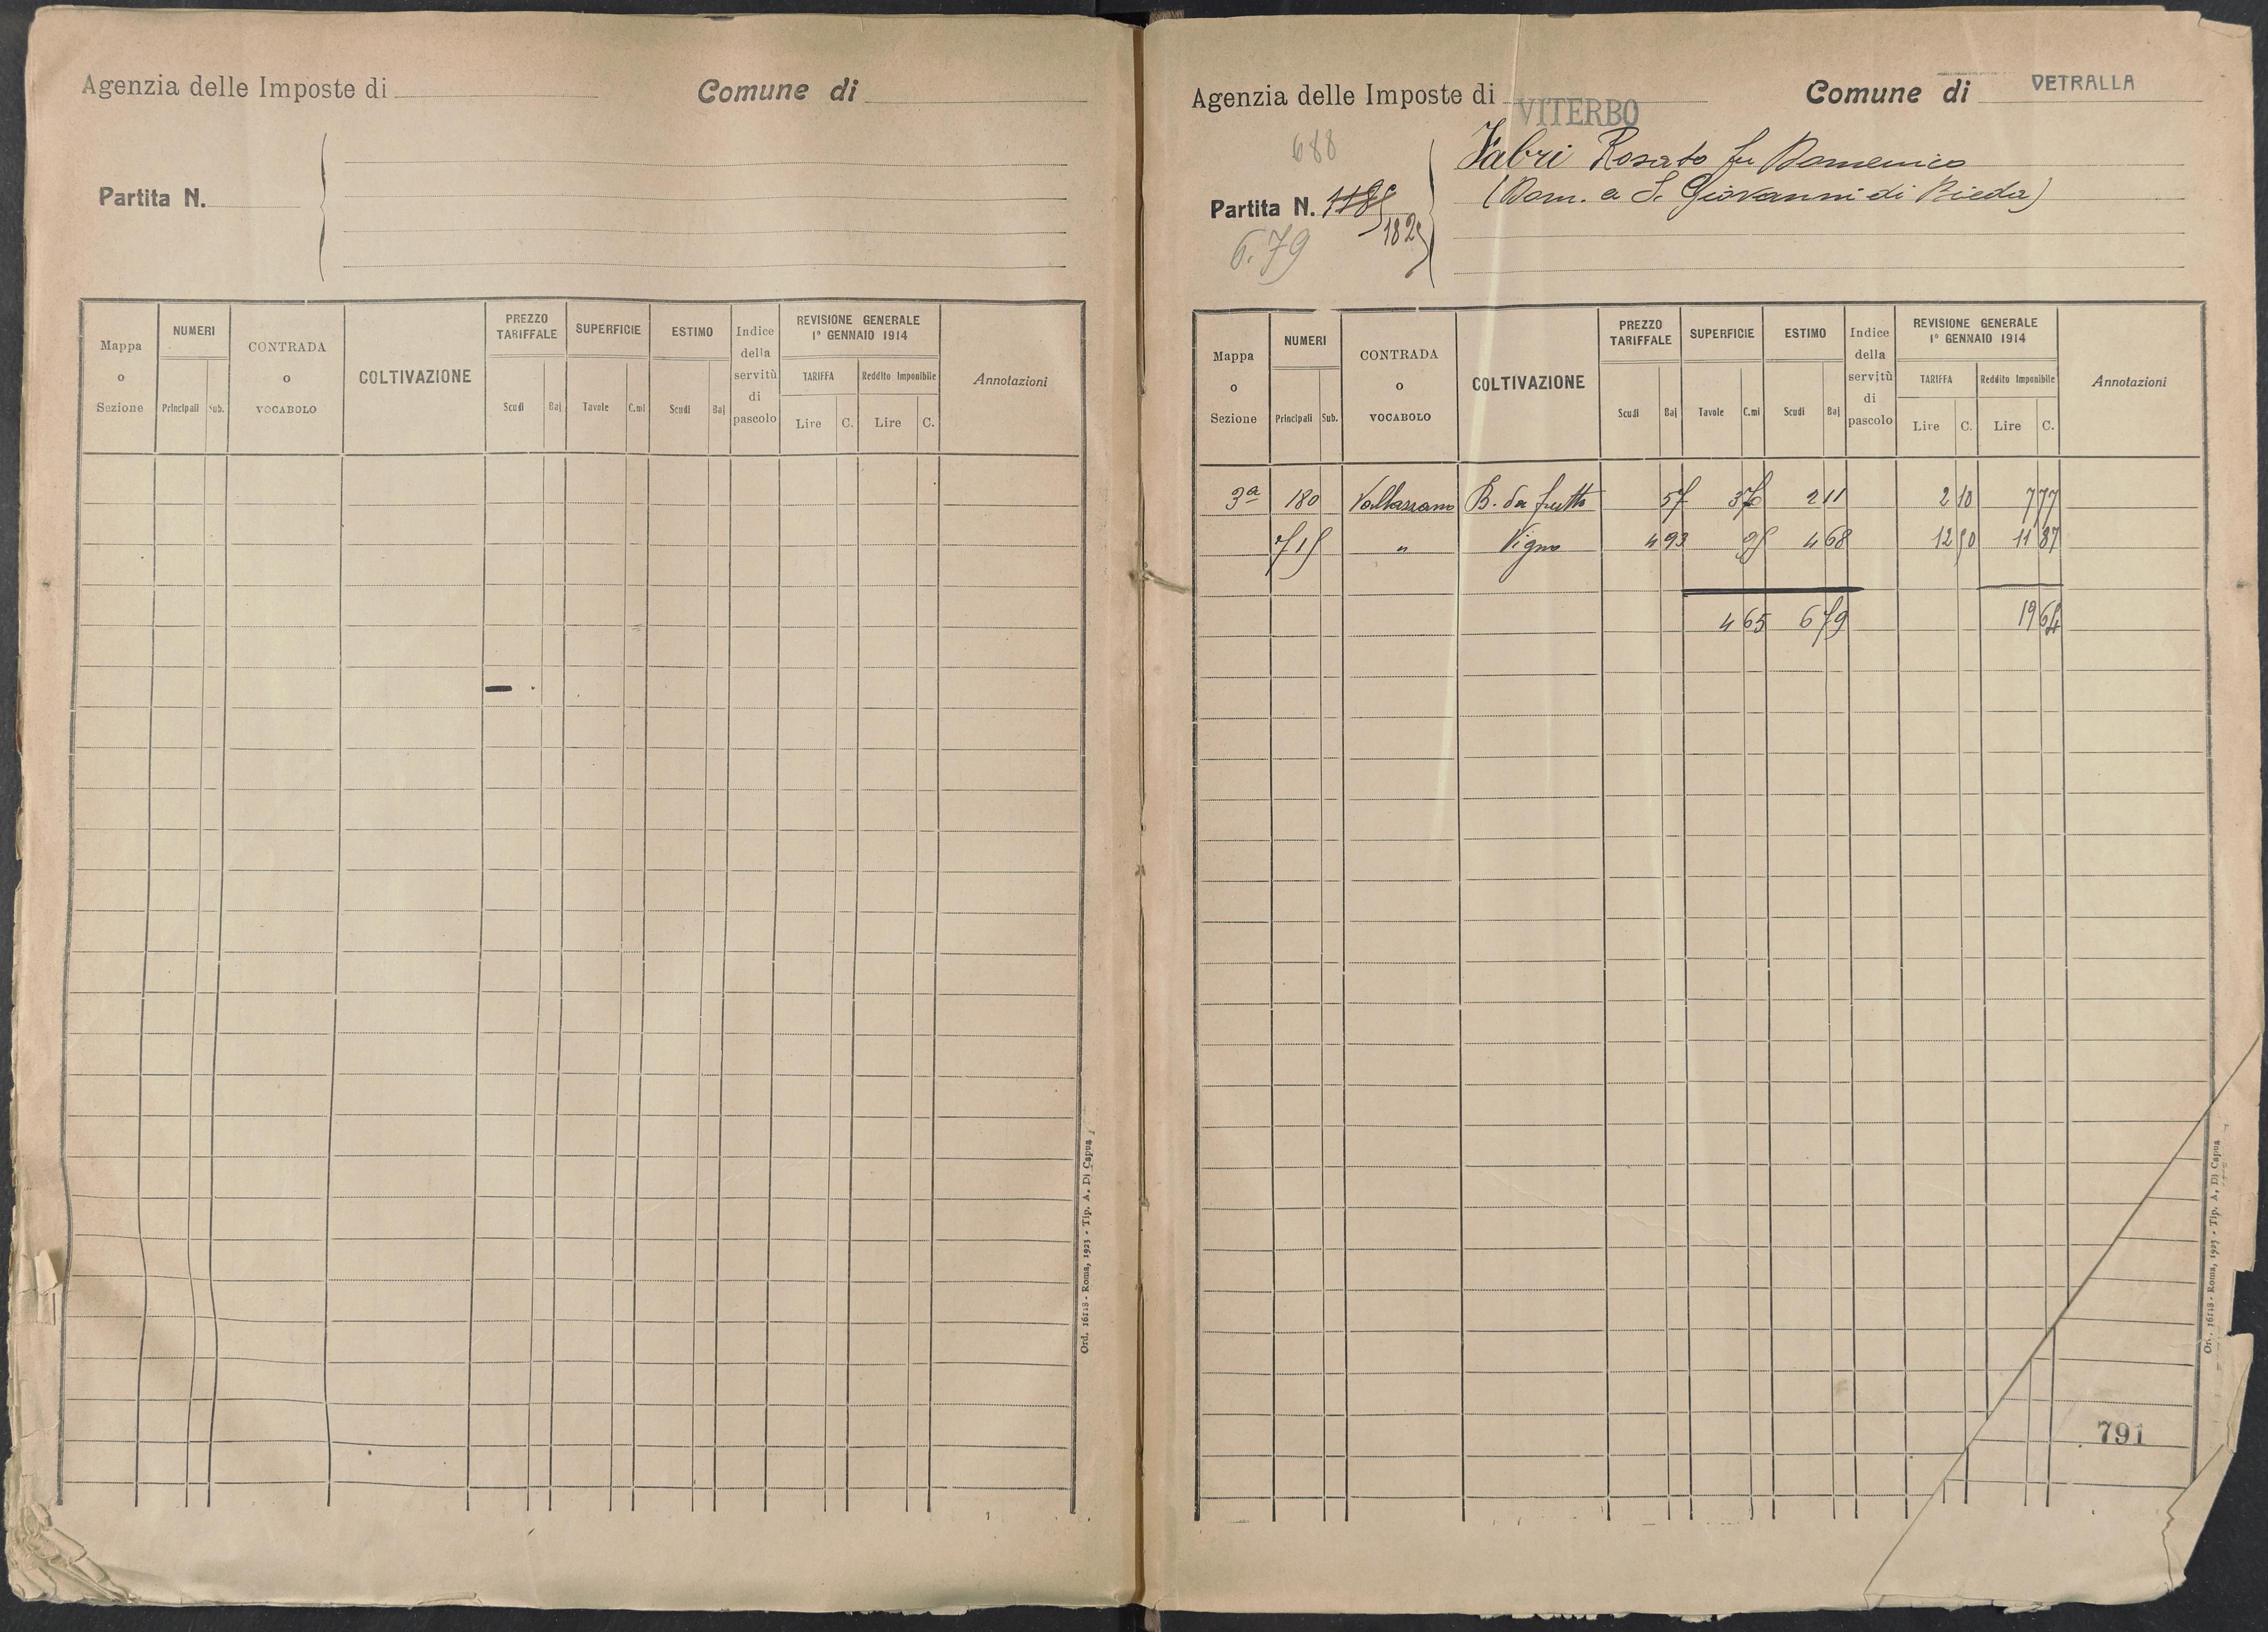 Agenzia delle Imposte di
Comune di
Partita N.
Mappa o Sezione
NUMERI
Principali Sub.
CONTRADA o VOCABOLO
COLTIVAZIONE
PREZZO TARIFFALE
Scudi Baj
SUPERFICIE
Tavole C.mi
ESTIMO
Scudi Baj
Indice della servitù di pascolo
REVISIONE GENERALE
1° GENNAIO 1914
TARIFFA
Lire C.
Reddito Imponibile
Lire C.
Annotazioni
Ord. 16118 - Roma, 1923 - Tip. A. Di Capua
Agenzia delle Imposte di VITERBO
Comune di VETRALLA
688
Fabri Rosato fu Domenico
(Dom. a S. Giovanni di Bieda)
Partita N.
1825
6.79
Mappa o Sezione
NUMERI
Principali Sub.
CONTRADA o VOCABOLO
COLTIVAZIONE
PREZZO TARIFFALE
Scudi Baj
SUPERFICIE
Tavole C.mi
ESTIMO
Scudi Baj
Indice della servitù di pascolo
REVISIONE GENERALE
1° GENNAIO 1914
TARIFFA
Lire C.
Reddito Imponibile
Lire C.
Annotazioni
3a 180 B. da frutto 57 3 70 2 11 2 10 7 77
715 " Vigna 4 93 95 4 68 12 50 11 87
4 65 6 79 19 64
Ord. 16118 - Roma, 1923 - Tip. A. Di Capua
791